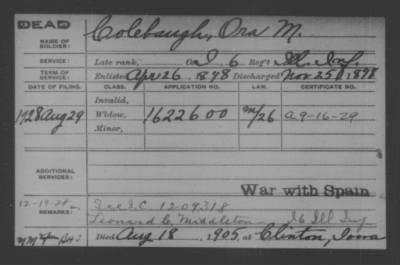 DEAD
NAME OF SOLDIER: Colebaugh, Ora M.
SERVICE: Late rank, Co. I, 6 Reg't Ill. Inf.
TERM OF SERVICE: Enlisted Apr 26, 1898 Discharged Nov. 25, 1898
DATE OF FILING. CLASS. APPLICATION NO. LAW. CERTIFICATE NO.
Invalid,
1928 Aug 29 Widow, 1622600 M/26 A9-16-29
Minor,
ADDITIONAL SERVICES:
War with Spain
12-19-28
REMARKS: See I.C. 1209318
Leonard C. Middleton I6 Ill Inf
Died Aug 18, 1905, at Clinton, Iowa